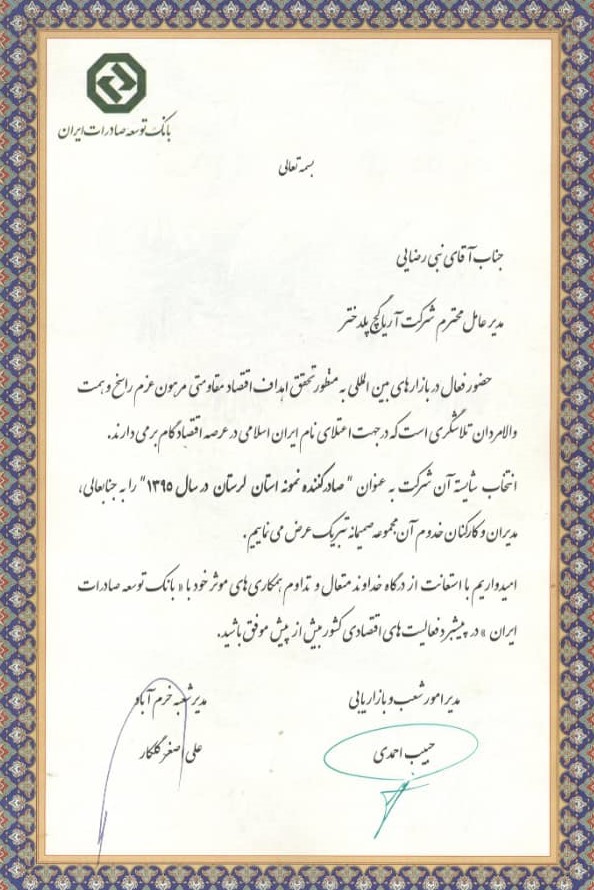 بانک توسعه صادرات ایران
بسمه تعالی
جناب آقای نبی رضایی
مدیر عامل محترم شرکت آریا گچ پلدختر
حضور فعال در بازارهای بین المللی به منظور تحقق اهداف اقتصاد مقاومتی مرهون عزم راسخ و همت
والامردان تلاشگری است که در جهت اعتلای نام ایران اسلامی در عرصه اقتصاد گام برمی دارند.
انتخاب شایسته آن شرکت به عنوان "صادرکننده نمونه استان لرستان در سال ۱۳۹۵" را به جنابعالی،
مدیران و کارکنان خدوم آن مجموعه صمیمانه تبریک عرض می نماییم.
امیدواریم با استعانت از درگاه خداوند متعال و تداوم همکاری های موثر خود با « بانک توسعه صادرات
ایران » در پیشبرد فعالیت های اقتصادی کشور بیش از پیش موفق باشید.
مدیر امور شعب و بازاریابی
مدیر شعبه خرم آباد
حبیب احمدی
علی اصغر گلکار